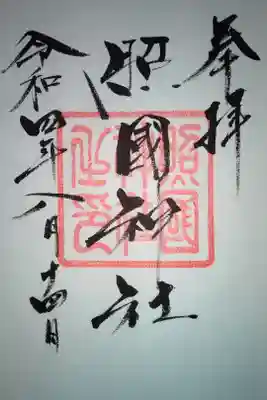 奉拝
照國神社
令和四年八月十四日
照國
神社
之印